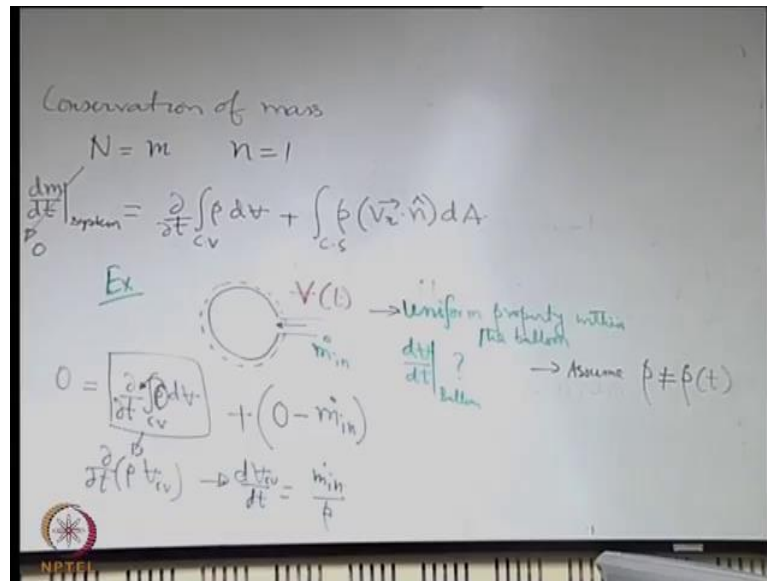 Conservation of mass
N = m n = 1
dm/dt|system = ∂/∂t ∫CV ρ dV + ∫C.S ρ (Vr · n̂) dA
0
Ex
V(t) → Uniform property within the balloon
ṁin
dV/dt|Balloon ? → Assume ρ ≠ ρ(t)
0 = ∂/∂t ∫CV ρ dV + (0 - ṁin)
∂/∂t (ρ VCV) → dVCV/dt = ṁin/ρ
NPTEL